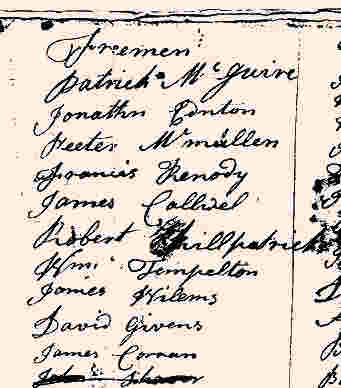 Freemen
Patrick McGuire
Jonathn Tenton
Peeter Mcmullen
Francis Kenody
James Calliwel
Robert Killpatrick
Wm: Tempelton
James Wilems
David Givens
James Conran